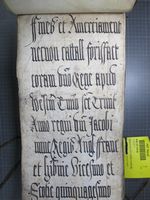 Fines et Amerciament
necnon catall forisfact
coram dno Rege apud
Westm Termino sce Trinit
Anno regni dni Jacobi
nunc Regis Angl ffranc
et hibnie vicesimo et
Scocie quinquagesimo